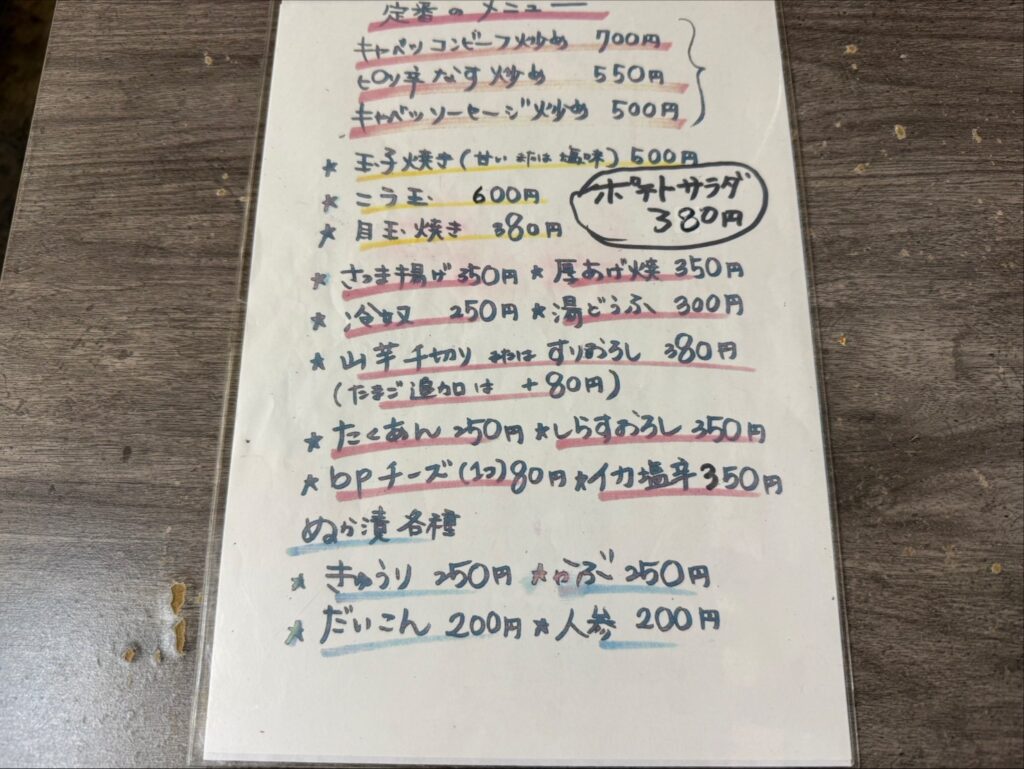 定番のメニュー
キャベツコンビーフ炒め 700円
ピリ辛なす炒め 550円
キャベツソーセージ炒め 500円
★ 玉子焼き(甘いまたは塩味)500円
★ ニラ玉 600円
ポテトサラダ
380円
★ 目玉焼き 380円
★ さつま揚げ 350円 ★ 厚あげ焼 350円
★ 冷奴 250円 ★ 湯どうふ 300円
★ 山芋千切り またはすりおろし 380円
(たまご追加は +80円)
★ たくあん 250円 ★ しらすおろし 350円
★ bpチーズ(1コ)80円 ★ イカ塩辛 350円
ぬか漬各種
★ きゅうり 250円 ★ かぶ 250円
★ だいこん 200円 ★ 人参 200円